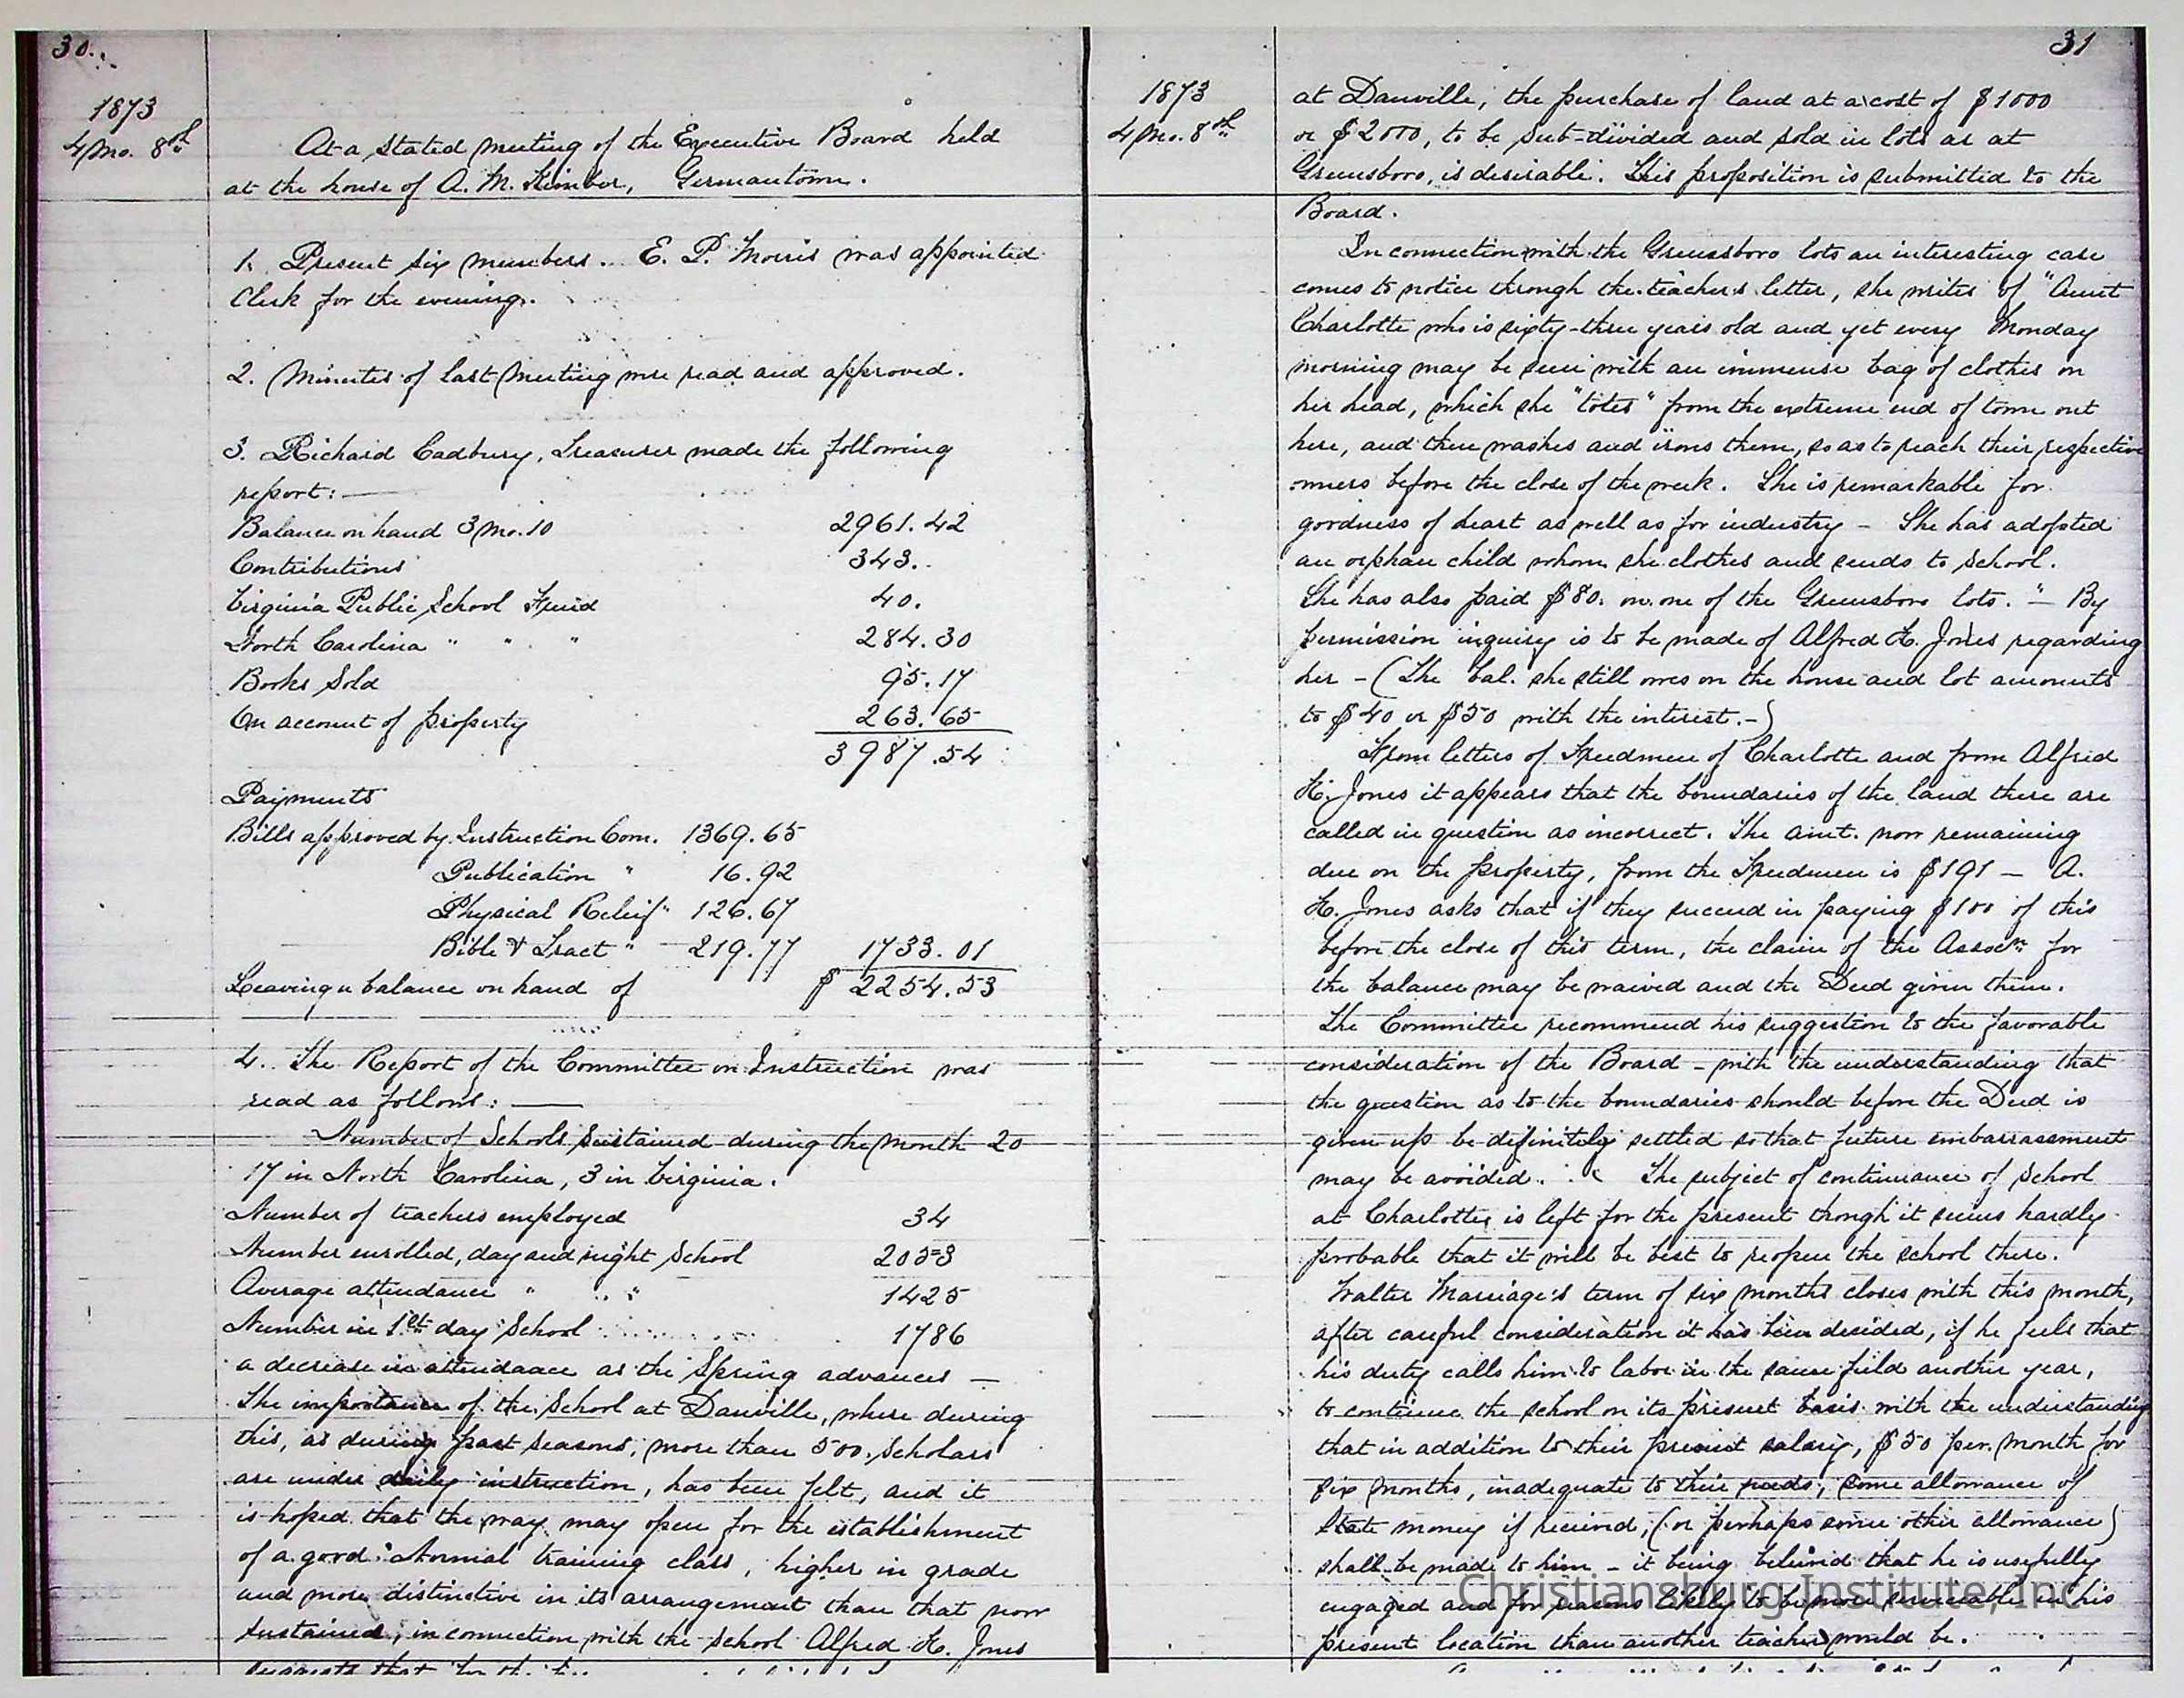 30.
1873
4 Mo. 8th
At a stated meeting of the Executive Board held
at the house of A. M. Kimber, Germantown.
1. Present six members. E. P. Morris was appointed
Clerk for the evening.
2. Minutes of last Meeting were read and approved.
3. Richard Cadbury, Treasurer made the following
report: —
Balance on hand 3 Mo. 10 2961.42
Contributions 343.
Virginia Public School Fund 40.
North Carolina " " " 284.30
Books Sold 95.17
On account of property 263.65
3987.54
Payments
Bills approved by Instruction Com. 1369.65
Publication " 16.92
Physical Relief " 126.67
Bible & Tract " 219.77 1733.01
Leaving a balance on hand of $ 2254.53
4. The Report of the Committee on Instruction was
read as follows: —
Number of Schools sustained during the month 20
17 in North Carolina, 3 in Virginia.
Number of teachers employed 34
Number enrolled, day and night School 2053
Average attendance " " " 1425
Number in 1st day School 1786
a decrease in attendance as the Spring advances —
The importance of the School at Danville, where during
this, as during past seasons, more than 500 Scholars
are under daily instruction, has been felt, and it
is hoped that the way may open for the establishment
of a good Normal training class, higher in grade
and more distinctive in its arrangement than that now
sustained, in connection with the school Alfred H. Jones
suggests that
31
1873
4 Mo. 8th
at Danville, the purchase of land at a cost of $1000
or $2000, to be sub-divided and sold in lots as at
Greensboro, is desirable. This proposition is submitted to the
Board.
In connection with the Greensboro lots an interesting case
comes to notice through the teacher's letter, she writes of "Aunt
Charlotte who is sixty-three years old and yet every Monday
morning may be seen with an immense bag of clothes on
her head, which she "totes" from the extreme end of town out
here, and then washes and irons them, so as to reach their respective
owners before the close of the week. She is remarkable for
goodness of heart as well as for industry – She has adopted
an orphan child whom she clothes and sends to school.
She has also paid $80. on one of the Greensboro lots." — By
permission inquiry is to be made of Alfred H. Jones regarding
her – (The bal. she still owes on the house and lot amounts
to $40 or $50 with the interest. –)
From letters of Freedmen of Charlotte and from Alfred
H. Jones it appears that the boundaries of the land there are
called in question as incorrect. The amt. now remaining
due on the property, from the Freedmen is $191 — A.
H. Jones asks that if they succeed in paying $100 of this
before the close of this term, the claim of the Assocn for
the balance may be waived and the Deed given them.
The Committee recommend his suggestion to the favorable
consideration of the Board – with the understanding that
the question as to the boundaries should before the Deed is
given up be definitely settled so that future embarrassment
may be avoided. The subject of continuance of School
at Charlotte is left for the present though it seems hardly
probable that it will be best to reopen the school there.
Walter Marriage's term of six months closes with this month,
after careful consideration it has been decided, if he feels that
his duty calls him to labor in the same field another year,
to continue the school on its present basis with the understanding
that in addition to their present salary, $50 per month for
six months, inadequate to their needs, some allowance of
State money if received, (or perhaps some other allowance)
shall be made to him – it being believed that he is usefully
engaged and for reasons likely to be more serviceable in his
present location than another teacher would be.
Christiansburg Institute, Inc